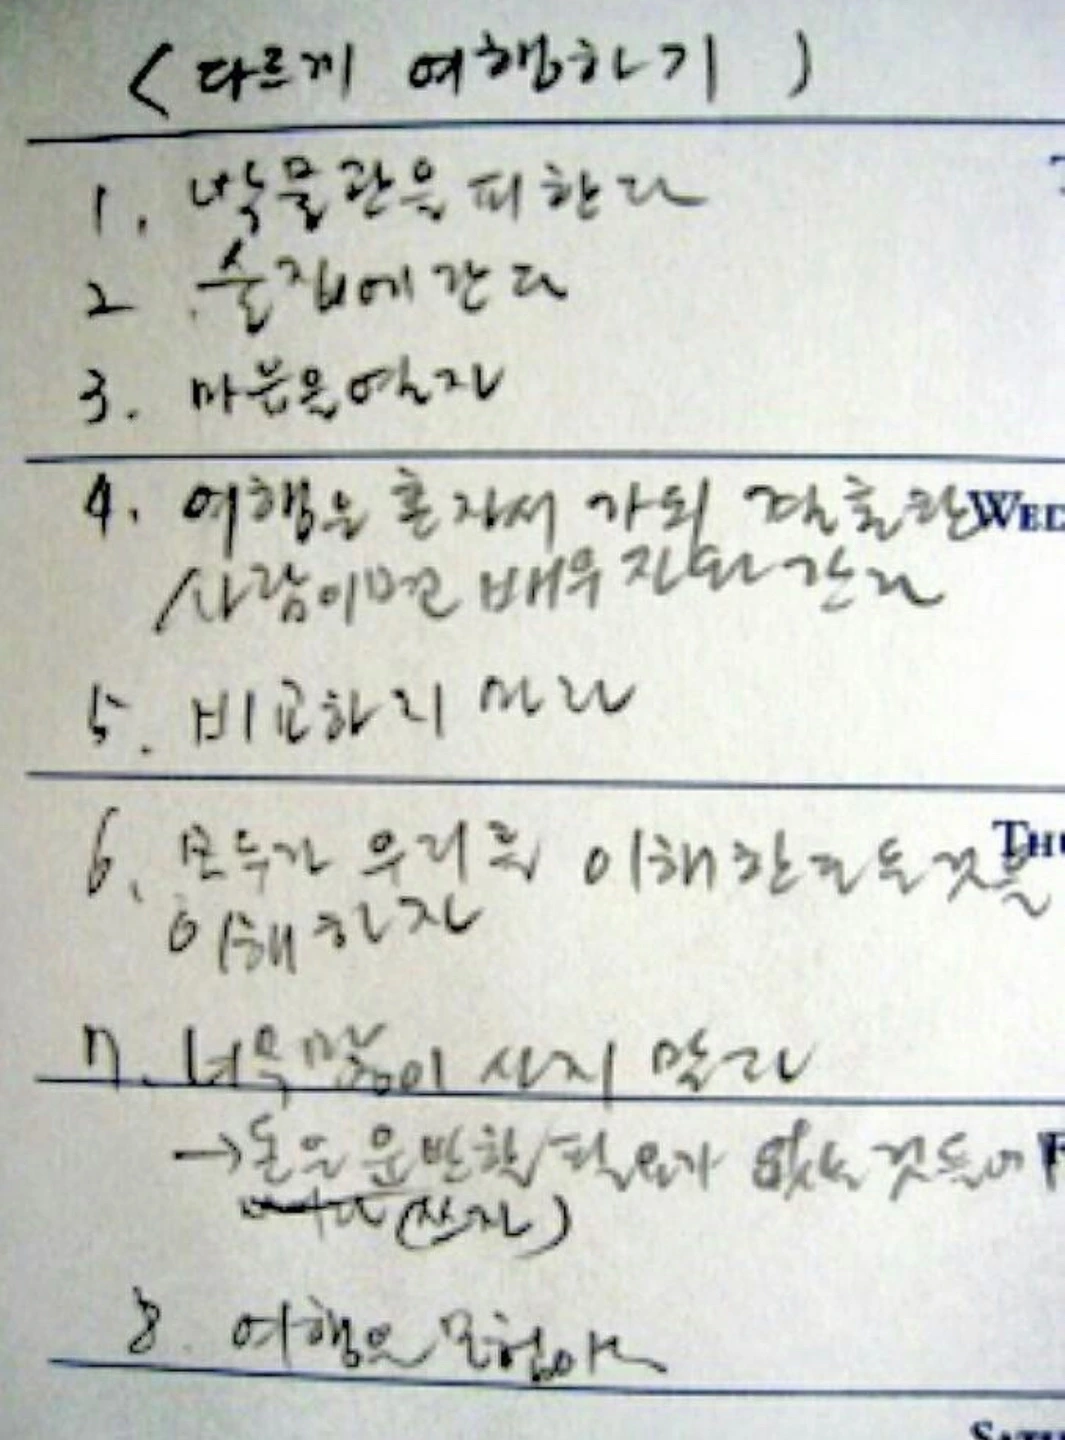 < 다르게 여행하기 )
1. 박물관을 피한다
2. 술집에 간다
3. 마음을 열자
4. 여행은 혼자서 가되 결혼한 WED
사람이면 배우자와 간다
5. 비교하지 마라
6. 모두가 우리를 이해한다는 것을 THU
이해하자
7. 너무 많이 사지 말라
→돈은 운반할 필요가 없는 것들에 F
(쓰자)
8. 여행은 모험이다
SATU